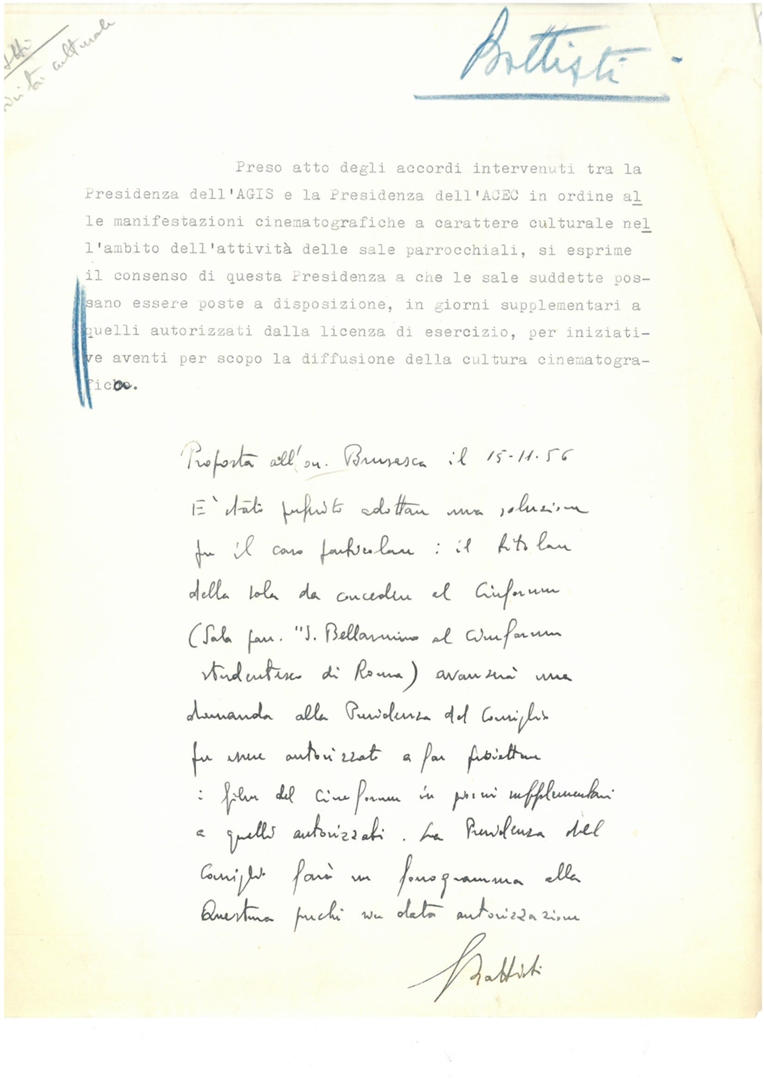 culturale
Battisti
Preso atto degli accordi intervenuti tra la
Presidenza dell'AGIS e la Presidenza dell'ACEC in ordine al
le manifestazioni cinematografiche a carattere culturale nel
l'ambito dell'attività delle sale parrocchiali, si esprime
il consenso di questa Presidenza a che le sale suddette pos-
sano essere poste a disposizione, in giorni supplementari a
quelli autorizzati dalla licenza di esercizio, per iniziati-
ve aventi per scopo la diffusione della cultura cinematogra-
fica.
Proposta all'on. Brusasca il 15-11-56
E' stato preferito adottare una soluzione
per il caso particolare : il titolare
della sala da concedere al Cineforum
(Sala parr. "S. Bellarmino al Cineforum
studentesco di Roma) avanzerà una
domanda alla Presidenza del Consiglio
per essere autorizzato a far proiettare
i film del Cineforum in giorni supplementari
a quelli autorizzati. La Presidenza del
Consiglio farà un fonogramma alla
Questura perché sia data autorizzazione
Battisti